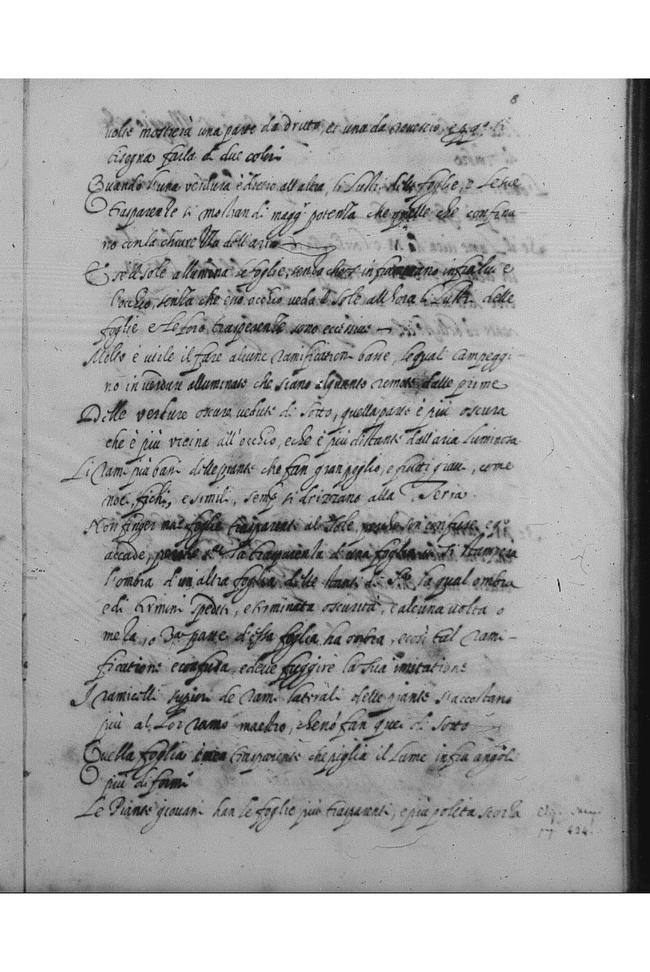 8
volte mostrerà una parte da dritto, et una da rovescio,
bisogna farla di due colori
Quando l'una verdura è dietro all'altra, li lustri delle foglie, e le sue
trasparenze si mostran di magg.r potenza che quelle che confina-
no con la chiarezza dell'aria
E se'l sole allumina le foglie, senza che s'infra
l'occhio, senza che esso occhio veda il sole, all'hora li lustri delle
foglie e le loro trasparenze sono eccessive
Molto è utile il fare alcune ramificationi basse, le quali campeggi-
no in verdure alluminate che siano alquanto remote dalle prime
Delle verdure oscure vedute di sotto, quella parte è più oscura
che è più vicina all'occhio, e che è più distante dall'aria luminosa
Li rami più bassi delle piante che fan gran foglie, e frutti gravi, come
noci, fichi, e simili, sempre si drizzano alla Terra.
Non finger mai foglie trasparenti al sole, perche son confuse, e q.o
accade, perche la trasparenza d'una foglia si stampera
l'ombra d'un'altra foglia, che le stara di sopra la qual ombra
e di termini spediti, e terminata oscurità, e alcuna volta o
meza, o 3.a parte, d'essa foglia ha ombra, e così tal rami-
ficatione è confusa, e devesi fuggire la sua imitatione
I ramicelli superiori de rami laterali delle piante s'accostano
più al lor ramo maestro, che non fan quei di sotto
Quella foglia è men trasparente che piglia il lume infra angoli
più difformi
Le Piante giovani han le foglie più trasparenti, e più polita scorza
pg. 434.